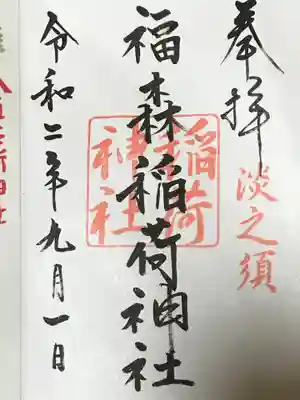 奉拝
淡之須
福森稲荷神社
稲荷
神社
令和二年九月一日